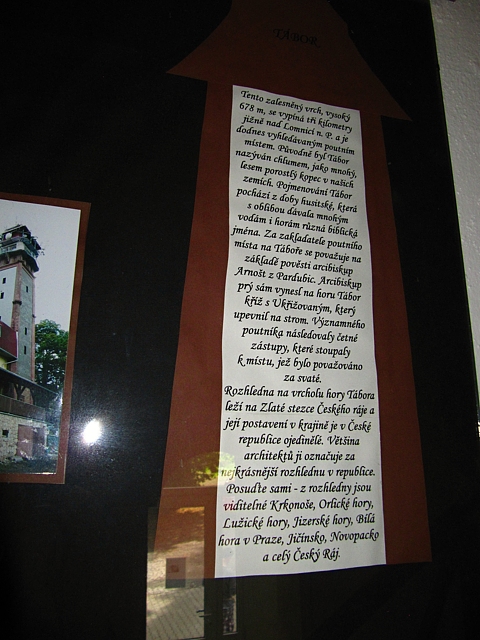 TÁBOR
Tento zalesněný vrch, vysoký
678 m, se vypíná tři kilometry
jižně nad Lomnicí n. P. a je
dodnes vyhledávaným poutním
místem. Původně byl Tábor
nazýván chlumem, jako mnohý,
lesem porostlý kopec v našich
zemích. Pojmenování Tábor
pochází z doby husitské, která
s oblibou dávala mnohým
vodám i horám různá biblická
jména. Za zakladatele poutního
místa na Táboře se považuje na
základě pověsti arcibiskup
Arnošt z Pardubic. Arcibiskup
prý sám vynesl na horu Tábor
kříž s Ukřižovaným, který
upevnil na strom. Významného
poutníka následovaly četné
zástupy, které stoupaly
k místu, jež bylo považováno
za svaté.
Rozhledna na vrcholu hory Tábora
leží na Zlaté stezce Českého ráje a
její postavení v krajině je v České
republice ojedinělé. Většina
architektů ji označuje za
nejkrásnější rozhlednu v republice.
Posuďte sami - z rozhledny jsou
viditelné Krkonoše, Orlické hory,
Lužické hory, Jizerské hory, Bílá
hora v Praze, Jičínsko, Novopacko
a celý Český Ráj.